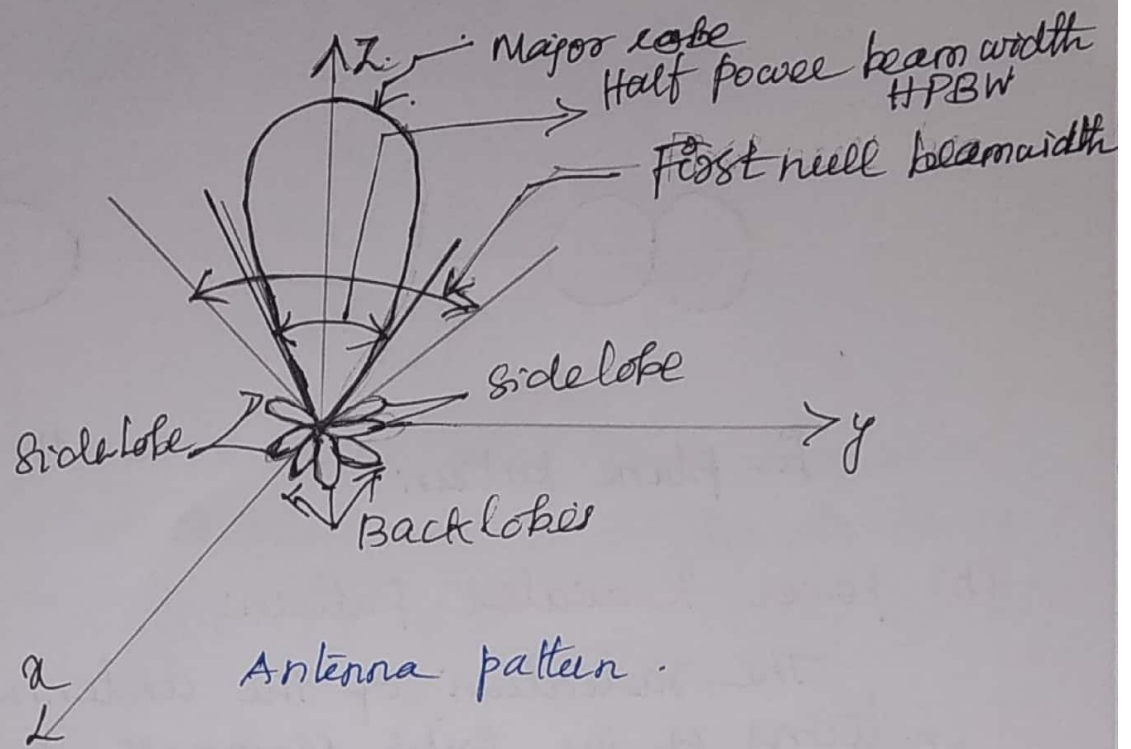 Z
Major lobe
Half power beam width
HPBW
First null beamwidth
Sidelobe
Sidelobe
y
Backlobes
x
Antenna pattern.